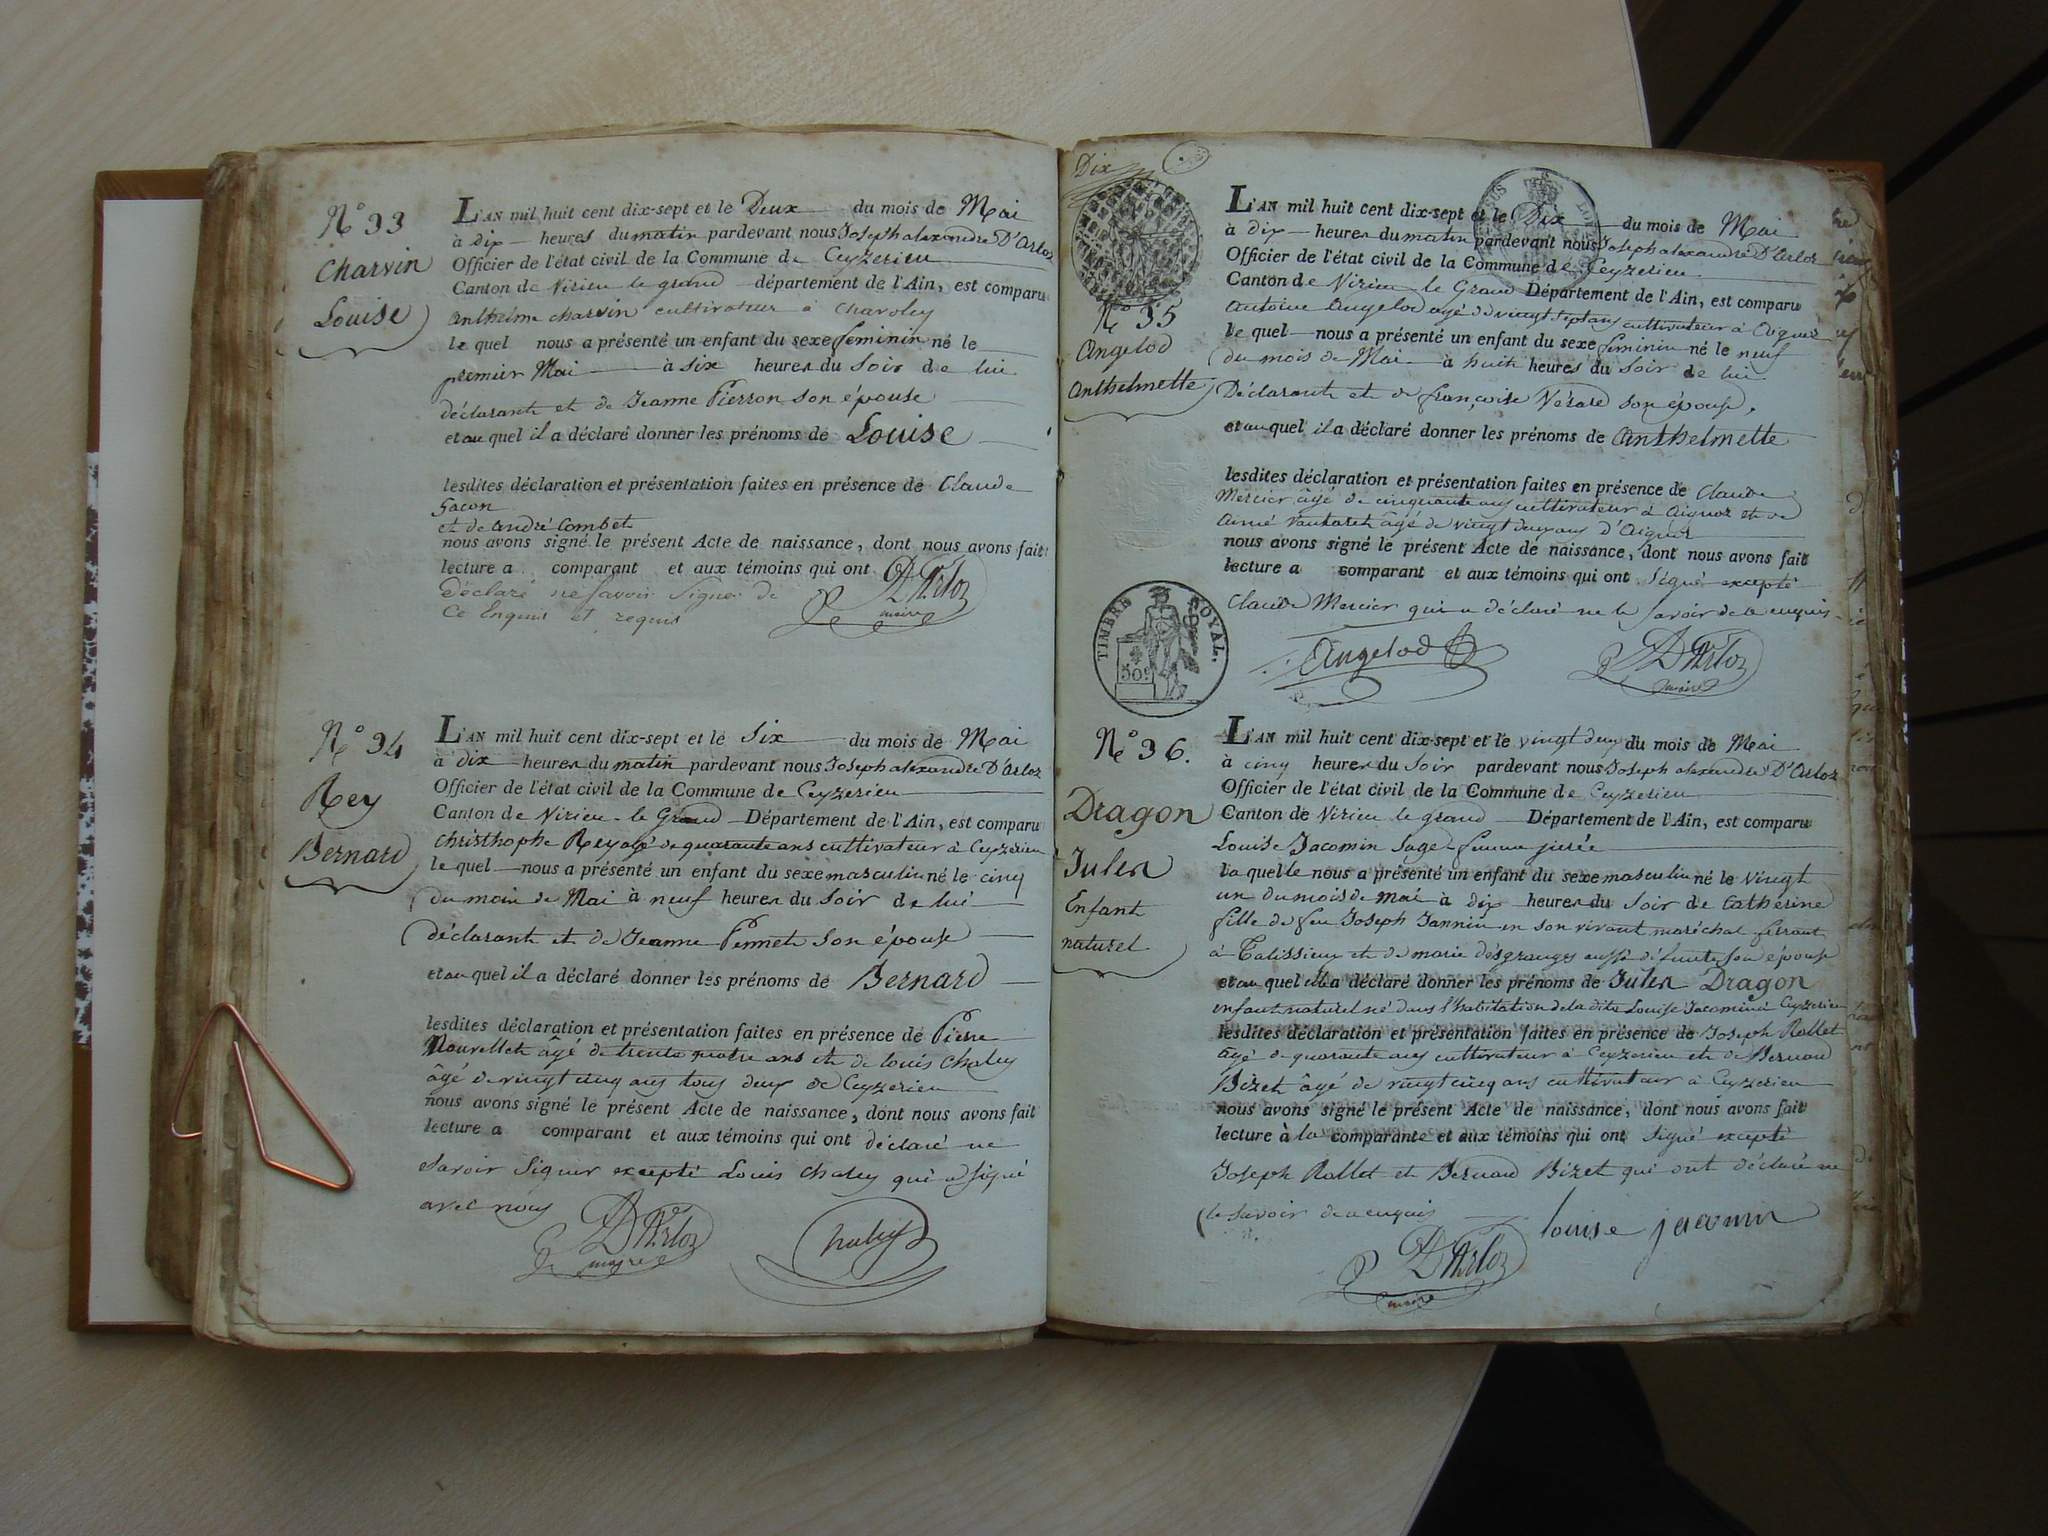 N° 33
Charvin
Louise
L'AN mil huit cent dix-sept et le Deux du mois de Mai
à dix heures du matin pardevant nous Joseph alexandre D'arloz
Officier de l'état civil de la Commune de Ceyzerieu
Canton de Virieu le grand département de l'Ain, est comparu
anthelme charvin cultivateur à Chavoley
le quel nous a présenté un enfant du sexe feminin né le
premier Mai à six heures du soir de lui
déclarant et de Jeanne Pierron son épouse
et au quel il a déclaré donner les prénoms de Louise
lesdites déclaration et présentation faites en présence de Claude
Gacon
et de andré Combet
nous avons signé le présent Acte de naissance, dont nous avons fait
lecture a comparant et aux témoins qui ont
déclaré ne savoir signer de
ce Enquis et requis
D'Arloz
maire
N° 34
Rey
Bernard
L'AN mil huit cent dix-sept et le six du mois de Mai
à dix heures du matin pardevant nous Joseph alexandre D'arloz
Officier de l'état civil de la Commune de Ceyzerieu
Canton de Virieu-le Grand Département de l'Ain, est comparu
christhophe Rey agé de quarante ans cultivateur à Ceyzerieu
le quel nous a présenté un enfant du sexe masculin né le cinq
du mois de Mai à neuf heures du soir de lui
déclarant et de Jeanne Pennet son épouse
et au quel il a déclaré donner les prénoms de Bernard
lesdites déclaration et présentation faites en présence de Pierre
âgé de trente quatre ans et de louis Chaley
âgé de vingt cinq ans tous deux de Ceyzerieu
nous avons signé le présent Acte de naissance, dont nous avons fait
lecture a comparant et aux témoins qui ont déclaré ne
savoir signer excepté Louis Chaley qui a signé
avec nous
D'Arloz
maire
Chaley
Dix
N° 35
Angelod
Anthelmette
L'AN mil huit cent dix-sept et le Dix du mois de Mai
à dix heures du matin pardevant nous Joseph alexandre D'Arloz
Officier de l'état civil de la Commune de Ceyzerieu
Canton de Virieu le Grand Département de l'Ain, est comparu
Antoine Angelod agé de vingt sept ans cultivateur à Aignoz
le quel nous a présenté un enfant du sexe feminin né le neuf
du mois de Mai à huit heures du soir de lui
Déclarant et de françoise Vérard son épouse,
et au quel il a déclaré donner les prénoms de Anthelmette
lesdites déclaration et présentation faites en présence de Claude
Mercier âgé de cinquante ans cultivateur à Aignoz et de
aimé âgé de vingt deux ans d'Aignoz
nous avons signé le présent Acte de naissance, dont nous avons fait
lecture a comparant et aux témoins qui ont signé excepté
Claude Mercier qui a déclaré ne le savoir de ce enquis
TIMBRE ROYAL.
50c
Angelod
D'Arloz
maire
N° 36.
Dragon
Julen
Enfant
naturel
L'AN mil huit cent dix-sept et le vingt deux du mois de Mai
à cinq heures du soir pardevant nous Joseph alexandre D'arloz
Officier de l'état civil de la Commune de Ceyzerieu
Canton de Virieu le grand Département de l'Ain, est comparu
Louise Jacomin sage femme jurée
la quelle nous a présenté un enfant du sexe masculin né le vingt
un du mois de mai à dix heures du soir de Cathérine
fille de feu Joseph Jannin en son vivant maréchal ferrant
à Talissieu et de marie désgranges aussi défunte son épouse
et au quel elle a déclaré donner les prénoms de Julen Dragon
enfant naturel né dans l'habitation de la dite Louise Jacomin à Ceyzerieu
lesdites déclaration et présentation faites en présence de Joseph Rollet
âgé de quarante ans cultivateur à Ceyzerieu et de Bernard
Bizet âgé de vingt cinq ans cultivateur à Ceyzerieu
nous avons signé le présent Acte de naissance, dont nous avons fait
lecture à la comparante et aux témoins qui ont signé excepté
Joseph Rollet et Bernard Bizet qui ont déclaré ne
le savoir de ce enquis
louise jacomin
D'Arloz
maire